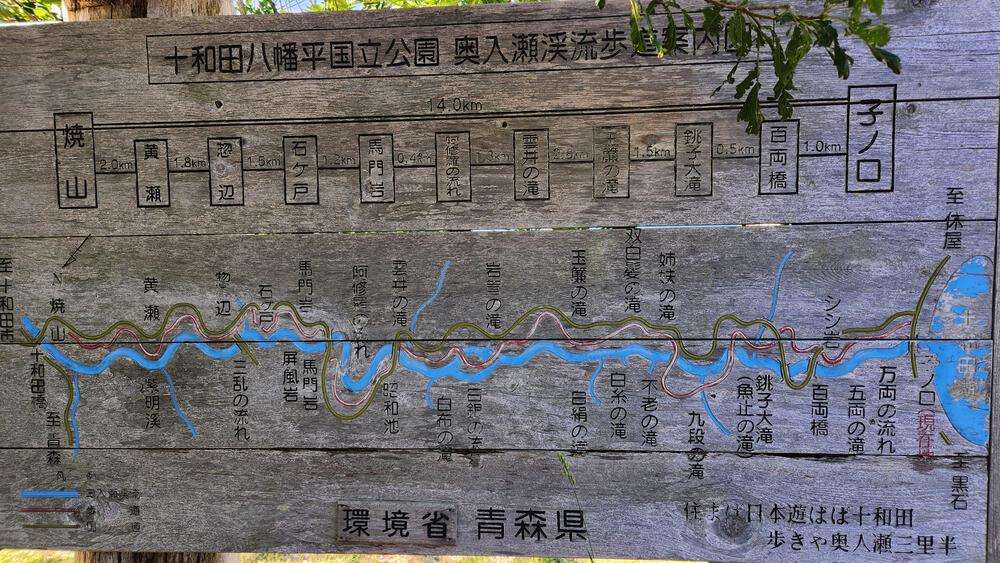 十和田八幡平国立公園 奥入瀬渓流歩道案内図
14.0km
焼山 2.0km 黄瀬 1.8km 惣辺 1.5km 石ケ戸 1.2km 馬門岩 0.4km 阿修羅の流れ 雲井の滝 玉簾の滝 1.5km 銚子大滝 0.5km 百両橋 1.0km 子ノ口
至休屋
至十和田市
N
焼山
黄瀬
惣辺
石ケ戸
馬門岩
阿修羅の流れ
雲井の滝
岩菅の滝
玉簾の滝
双白髪の滝
姉妹の滝
シシ岩
十和田橋
至青森
紫明渓
三乱の流れ
屏風岩
馬門岩
昭和池
白布の滝
白銀の流れ
白絹の滝
白糸の滝
不老の滝
九段の滝
銚子大滝
(魚止の滝)
百両橋
五両の滝
万両の流れ
子ノ口(現在地)
十和田湖
至黒石
環境省 青森県
住まば日本遊ばば十和田
歩きゃ奥入瀬三里半